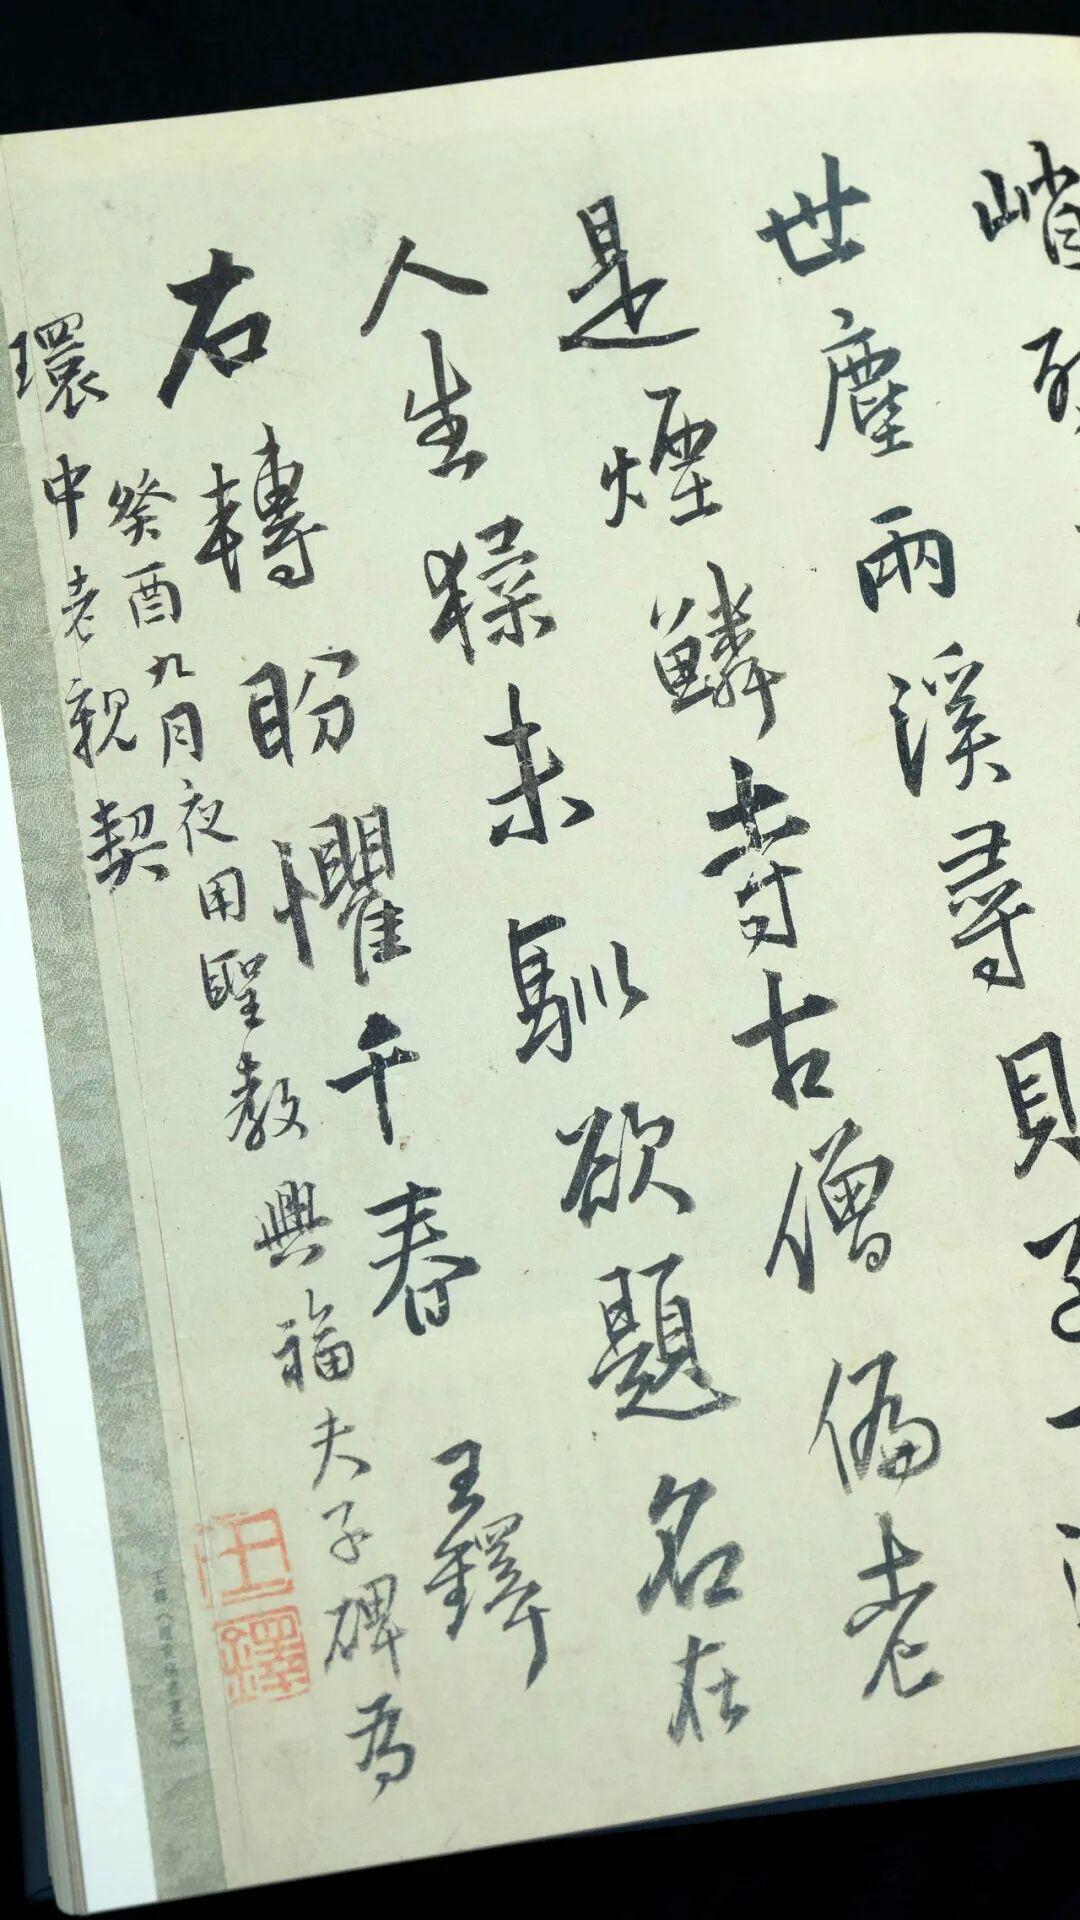 峭
世塵兩溪尋貝
是煙鱗寺古僧偏老
人生猱未馴欲題名在
右轉盼懼千春 王鐸
癸酉九月夜用聖教興福夫子碑為
環中老親契
王鐸